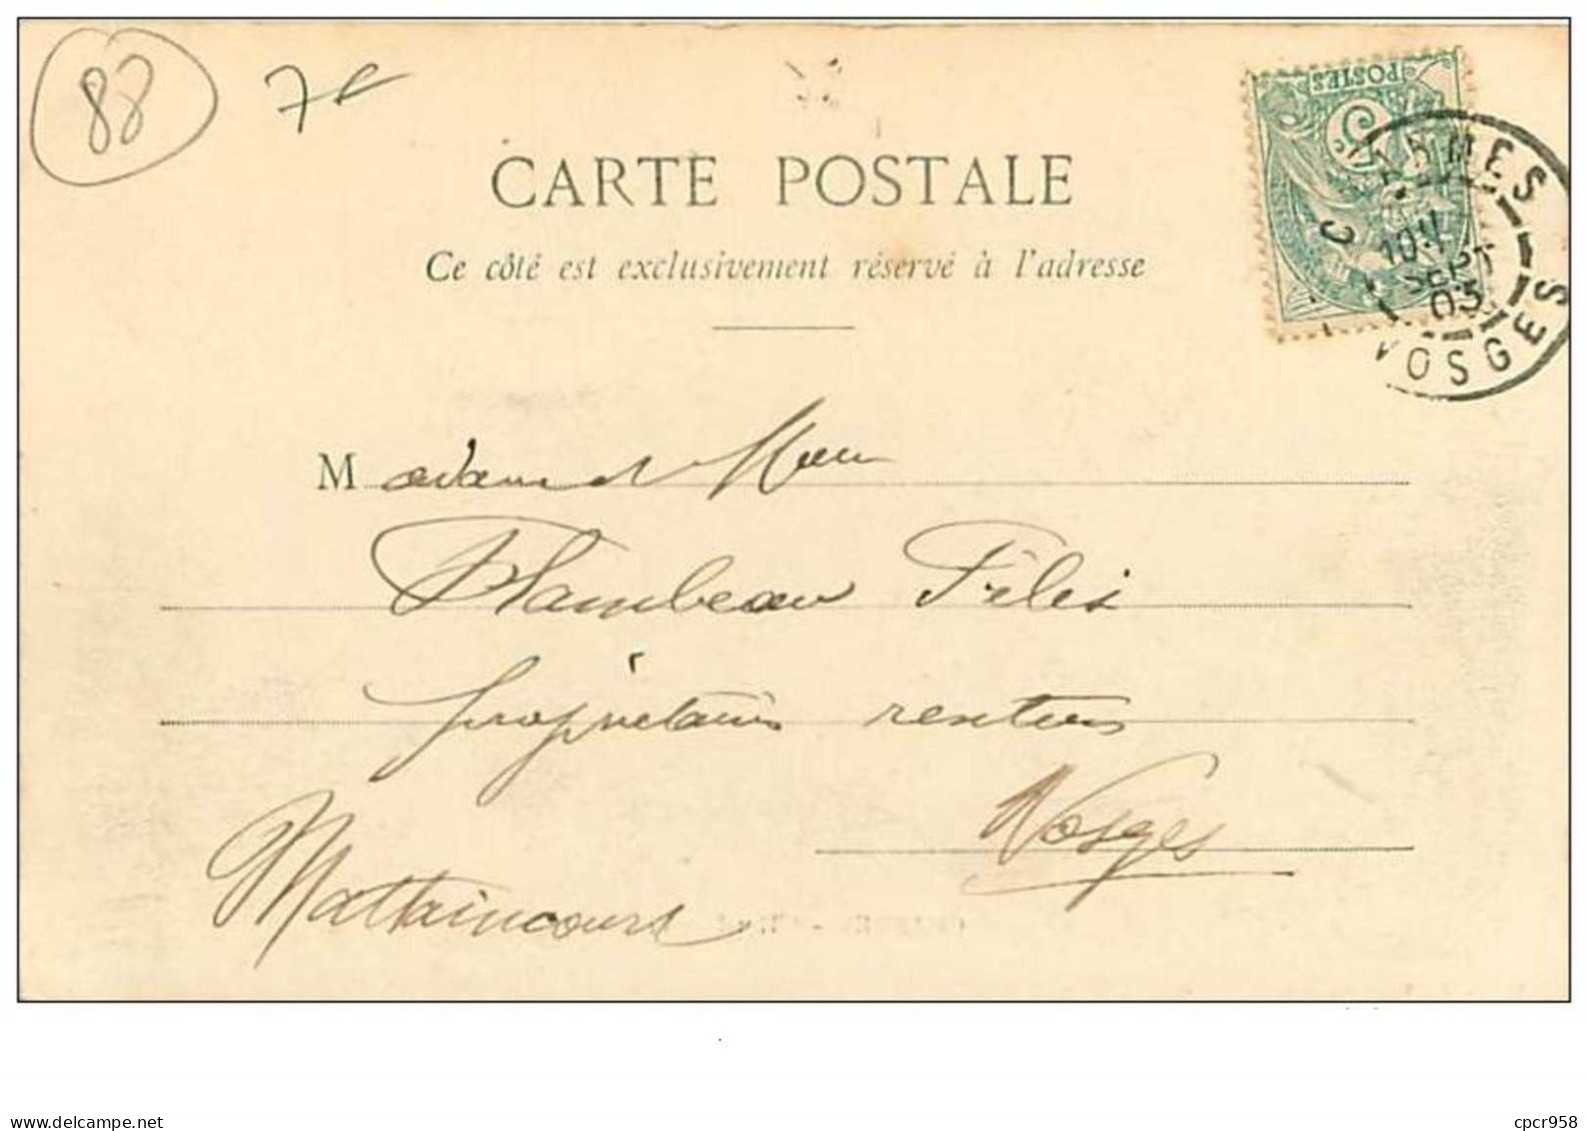 88
7€
POSTES
5
CARTE POSTALE
Ce côté est exclusivement réservé à l'adresse
CHARMES
SEPT
03
VOSGES
Madame et
Flambeau Félix
propriétaires rentiers
Vosges
Mattaincourt
www.delcampe.net
cpcr958